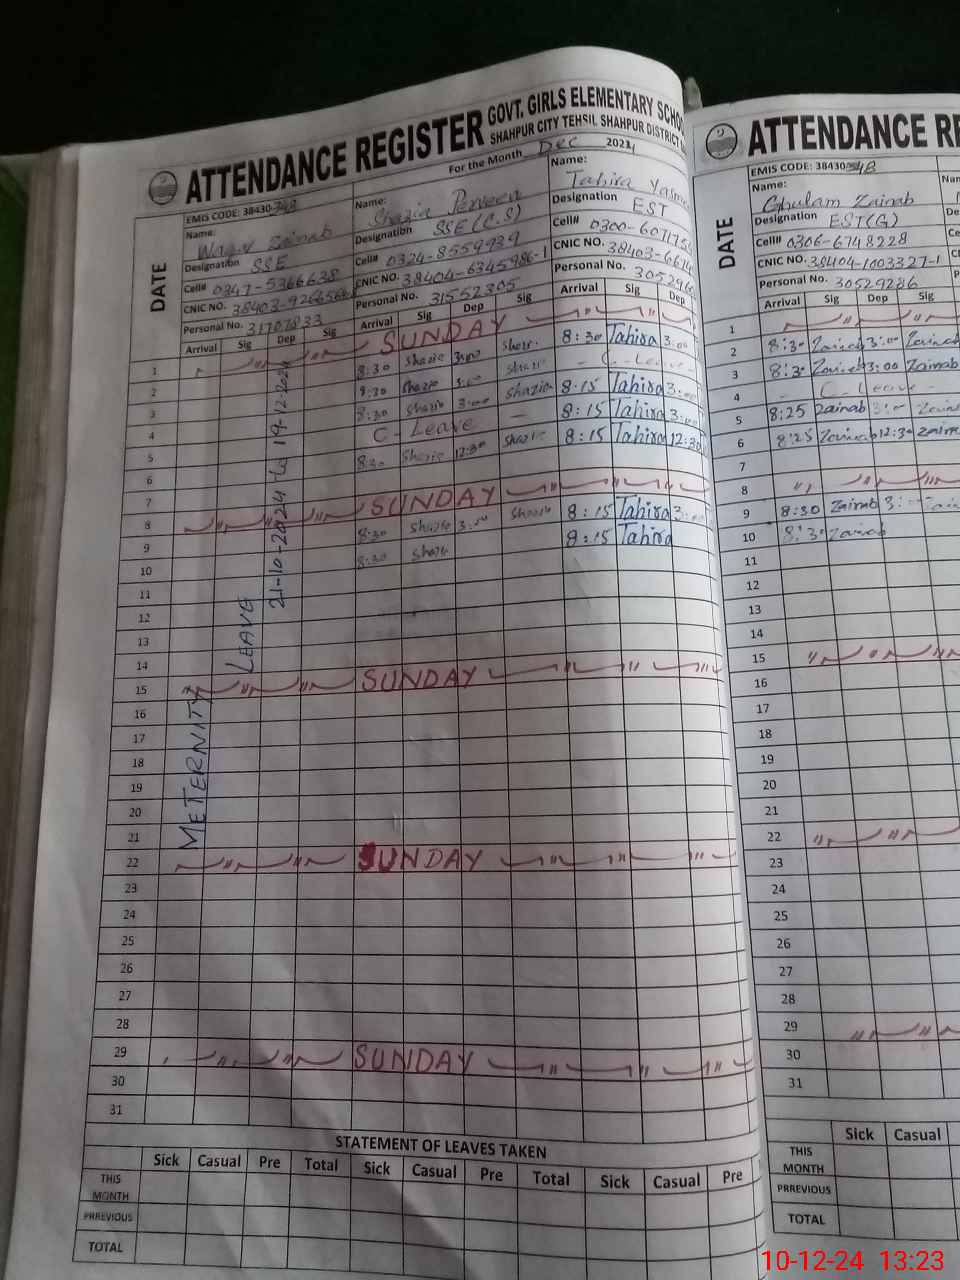 ATTENDANCE REGISTER GOVT. GIRLS ELEMENTARY SCHOO
SHAHPUR CITY TEHSIL SHAHPUR DISTRICT
EMIS CODE: 38430-
For the Month Dec 2024
Name: Zainab
Designation SSE
Cell#
CNIC NO.
Personal No.
Name: Shazia Perveen
Designation SSE (C.S)
Cell#
CNIC NO.
Personal No.
Name: Tahira
Designation EST
Cell#
CNIC NO.
Personal No.
DATE
Arrival Sig Dep Sig Arrival Sig Dep Sig Arrival Sig Dep
1 SUNDAY
2 8:30 Shazia 3:00 8:30 Tahira 3:00
3 8:30 Shazia C-Leave
4 8:30 Shazia 3:00 Shazia 8:15 Tahira 3:0
5 C-Leave 8:15 Tahira 3:0
6 8:30 Shazia 12:30 Shazia 8:15 Tahira 12:30
7
8 SUNDAY
9 8:30 Shazia 3:00 Shazia 8:15 Tahira 3:
10 8:30 8:15 Tahira
11
12
13
14
15 SUNDAY
16
17
18
19
20
21
22 SUNDAY
23
24
25
26
27
28
29 SUNDAY
30
31
METERNITY LEAVE 21-10-2024 to 19-12-2024
STATEMENT OF LEAVES TAKEN
Sick Casual Pre Total Sick Casual Pre Total Sick Casual Pre
THIS MONTH
PRREVIOUS
TOTAL
ATTENDANCE RE
EMIS CODE: 38430
Name: Ghulam Zainab
Designation EST(G)
Cell# 0306-6748228
CNIC NO. 38404-1003327-1
Personal No. 30529286
DATE
Arrival Sig Dep Sig
1
2 8:30 Zainab 3:00 Zainab
3 8:3 Zainab 3:00 Zainab
4 C-Leave
5 8:25 Zainab 3:00 Zaina
6 8:25 Zainab 12:30 Zaina
7
8
9 8:30 Zainab 3:
10 8:30 Zainab
11
12
13
14
15
16
17
18
19
20
21
22
23
24
25
26
27
28
29
30
31
Sick Casual
THIS MONTH
PRREVIOUS
TOTAL
10-12-24 13:23